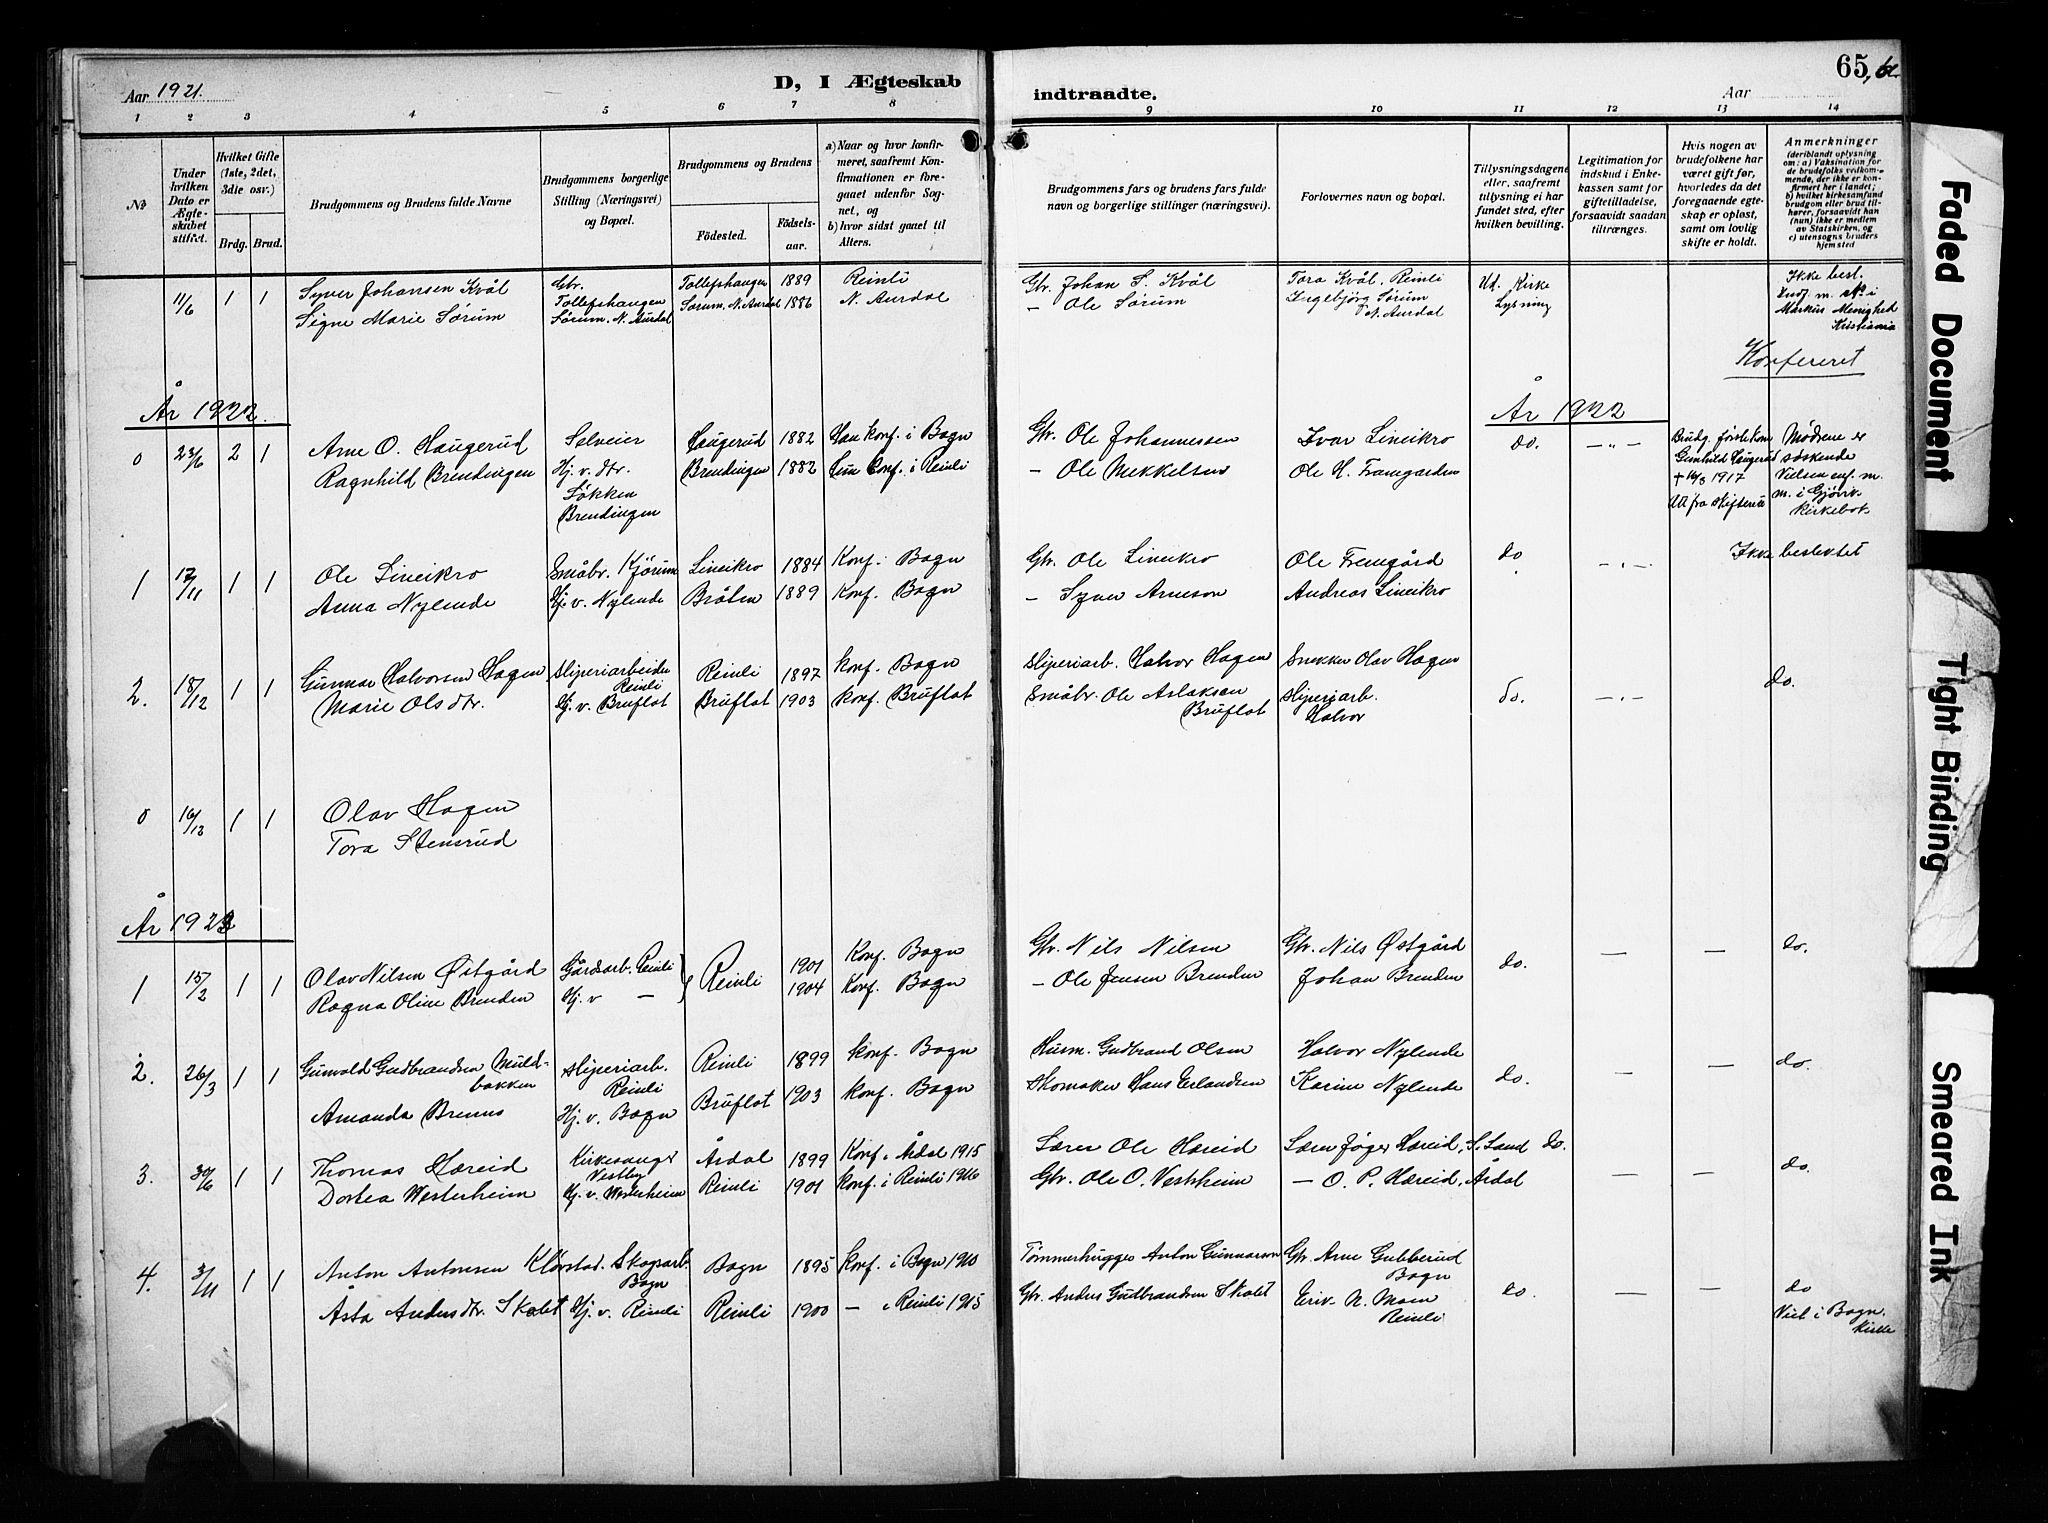 Aar 1921.
D, I Ægteskab
indtraadte.
Aar
65
1 2 3 4 5 6 7 8 9 10 11 12 13 14
No
Under hvilken Dato er Ægteskabet stiftet.
Hvilket Gifte (1ste, 2det, 3die osv.)
Brdg. Brud.
Brudgommens og Brudens fulde Navne
Brudgommens borgerlige Stilling (Næringsvei) og Bopæl.
Brudgommens og Brudens
Födested.
Födselsaar.
a) Naar og hvor konfirmeret, saafremt Konfirmationen er foregaaet udenfor Sognet, og
b) hvor sidst gaaet til Alters.
Brudgommens fars og brudens fars fulde navn og borgerlige stillinger (næringsvei).
Forlovernes navn og bopæl.
Tillysningsdagene eller, saafremt tillysning ei har fundet sted, efter hvilken bevilling.
Legitimation for indskud i Enkekassen samt for giftetilladelse, forsaavidt saadan tiltrænges.
Hvis nogen av brudefolkene har været gift før, hvorledes da det foregaaende egteskap er opløst, samt om lovlig skifte er holdt.
Anmerkninger
(deriblandt oplysning om: a) Vaksination for de brudefolks vedkommende, der ikke er konfirmert her i landet; b) hvilket kirkesamfund brudgom eller brud tilhører, forsaavidt han (hun) ikke er medlem av Statskirken, og c) utensogns bruders hjemsted
11/6 1 1 Syver Johansen Kvål Gbr. Tollefshaugen Tollefshaugen 1889 Reinli Gbr. Johan S. Kvål Tora Kvål, Reinli Ut. Kirke Ikke best.
Signe Marie Sørum Sørum, N. Aurdal Sørum, N. Aurdal 1886 N. Aurdal — Ole Sørum Ingebjörg Sørum N. Aurdal Lysning Indf. m. No i Markus Menighed Kristiania
Konfereret
År 1922. År 1922
0 23/6 2 1 Arne O. Haugerud Selveier Haugerud 1882 Han konf. i Bagn Gbr. Ole Johannessen Ivar Lineikro do. -"- Brudg. første kone Mødrene er
Ragnhild Brendingen Hj. v. dtr. Løkken Brendingen Brendingen 1882 Hun conf. i Reinli — Ole Mikkelsen Ole H. Framgarden Gunhild Haugerud søskende
1917 Vielsen enf. m.
Att fra Skifteret m. i Gjøvik kirkebok
1 17/11 1 1 Ole Lineikro Småbr. Lineikro 1884 Konf. Bagn Gbr. Ole Lineikro Ole Fremgård do Ikke beslektet
Anna Nylende Hj. v. Nylende Bråten 1889 Konf. Bagn — Syver Arneson Andreas Lineikro
2. 18/12 1 1 Gunnar Halvorsen Hagen sliperiarbeider Reinli Reinli 1897 konf. Bagn sliperiarb. Halvor Hagen Snekker Olav Hagen do.
Marie Olsdtr. Hj. v. Bruflat Bruflat 1903 konf. Bruflat Småbr. Ole Aslaksen Bruflat sliperiarb. Halvor do.
0 16/12 1 1 Olav Hagen
Tora Stensrud
År 1923
1 15/2 1 1 Olav Nilsen Østgård Gårdsarb. Reinli Reinli 1901 Konf. Bagn Gbr. Nils Nilsen Gbr. Nils Østgård do. — — do.
Ragna Oline Brenden Hj. v — 1904 Konf. Bagn — Ole Jensen Brenden Johan Brenden
2. 26/3 1 1 Gunvald Gudbrandsen Muldbakken sliperiarb. Reinli Reinli 1899 konf. Bagn Husm. Gudbrand Olsen Halvor Nylende — — do.
Amanda Brenno Hj. v. Bagn Bruflat 1903 konf. Bagn Skomaker Hans Erlandsen Karine Nylende do.
3. 30/6 1 1 Thomas Hæreid Kirkesanger Vestby Årdal 1899 Konf i Årdal 1915 Lærer Ole Hæreid Hæreid, S. Land do. — — do.
Dortea Westerheim Hj. v. Westerheim Reinli 1901 konf. i Reinli 1916 Gbr. Ole O. Vestrheim — O. P. Hæreid, Årdal
4. 3/11 1 1 Anton Antonsen Klørstad Skogsarb. Bagn Bagn 1895 konf. i Bagn 1910 Tømmerhugger Anton Gunnarson Gbr. Arne Gubberud Bagn do. — — do
Åsta Andersdtr. Skolet Hj. v. Reinli Reinli 1900 — i Reinli 1915 Gbr. Anders Gudbrandsen Skolet Eriv. N. Moen Reinli Viet i Bagn. Kirke
Faded Document
Tight Binding
Smeared Ink